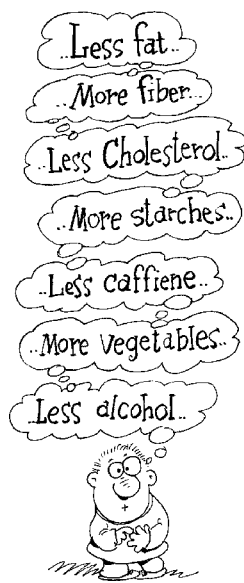 Less fat..
..More fiber..
..Less Cholesterol..
..More starches..
..Less caffiene..
..More vegetables..
..Less alcohol..